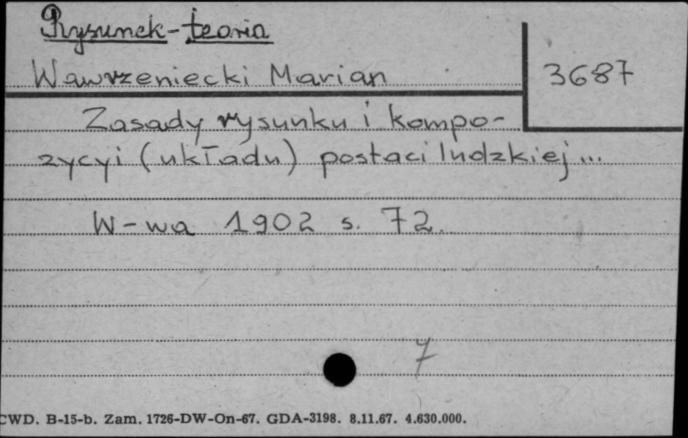 Rysunek-teoria
Wawrzeniecki Marian
3687
Zasady rysunku i kompo-
zycyi (układu) postaci ludzkiej...
W-wa 1902 s. 72.
7
CWD. B-15-b. Zam. 1726-DW-On-67. GDA-3198. 8.11.67. 4.630.000.